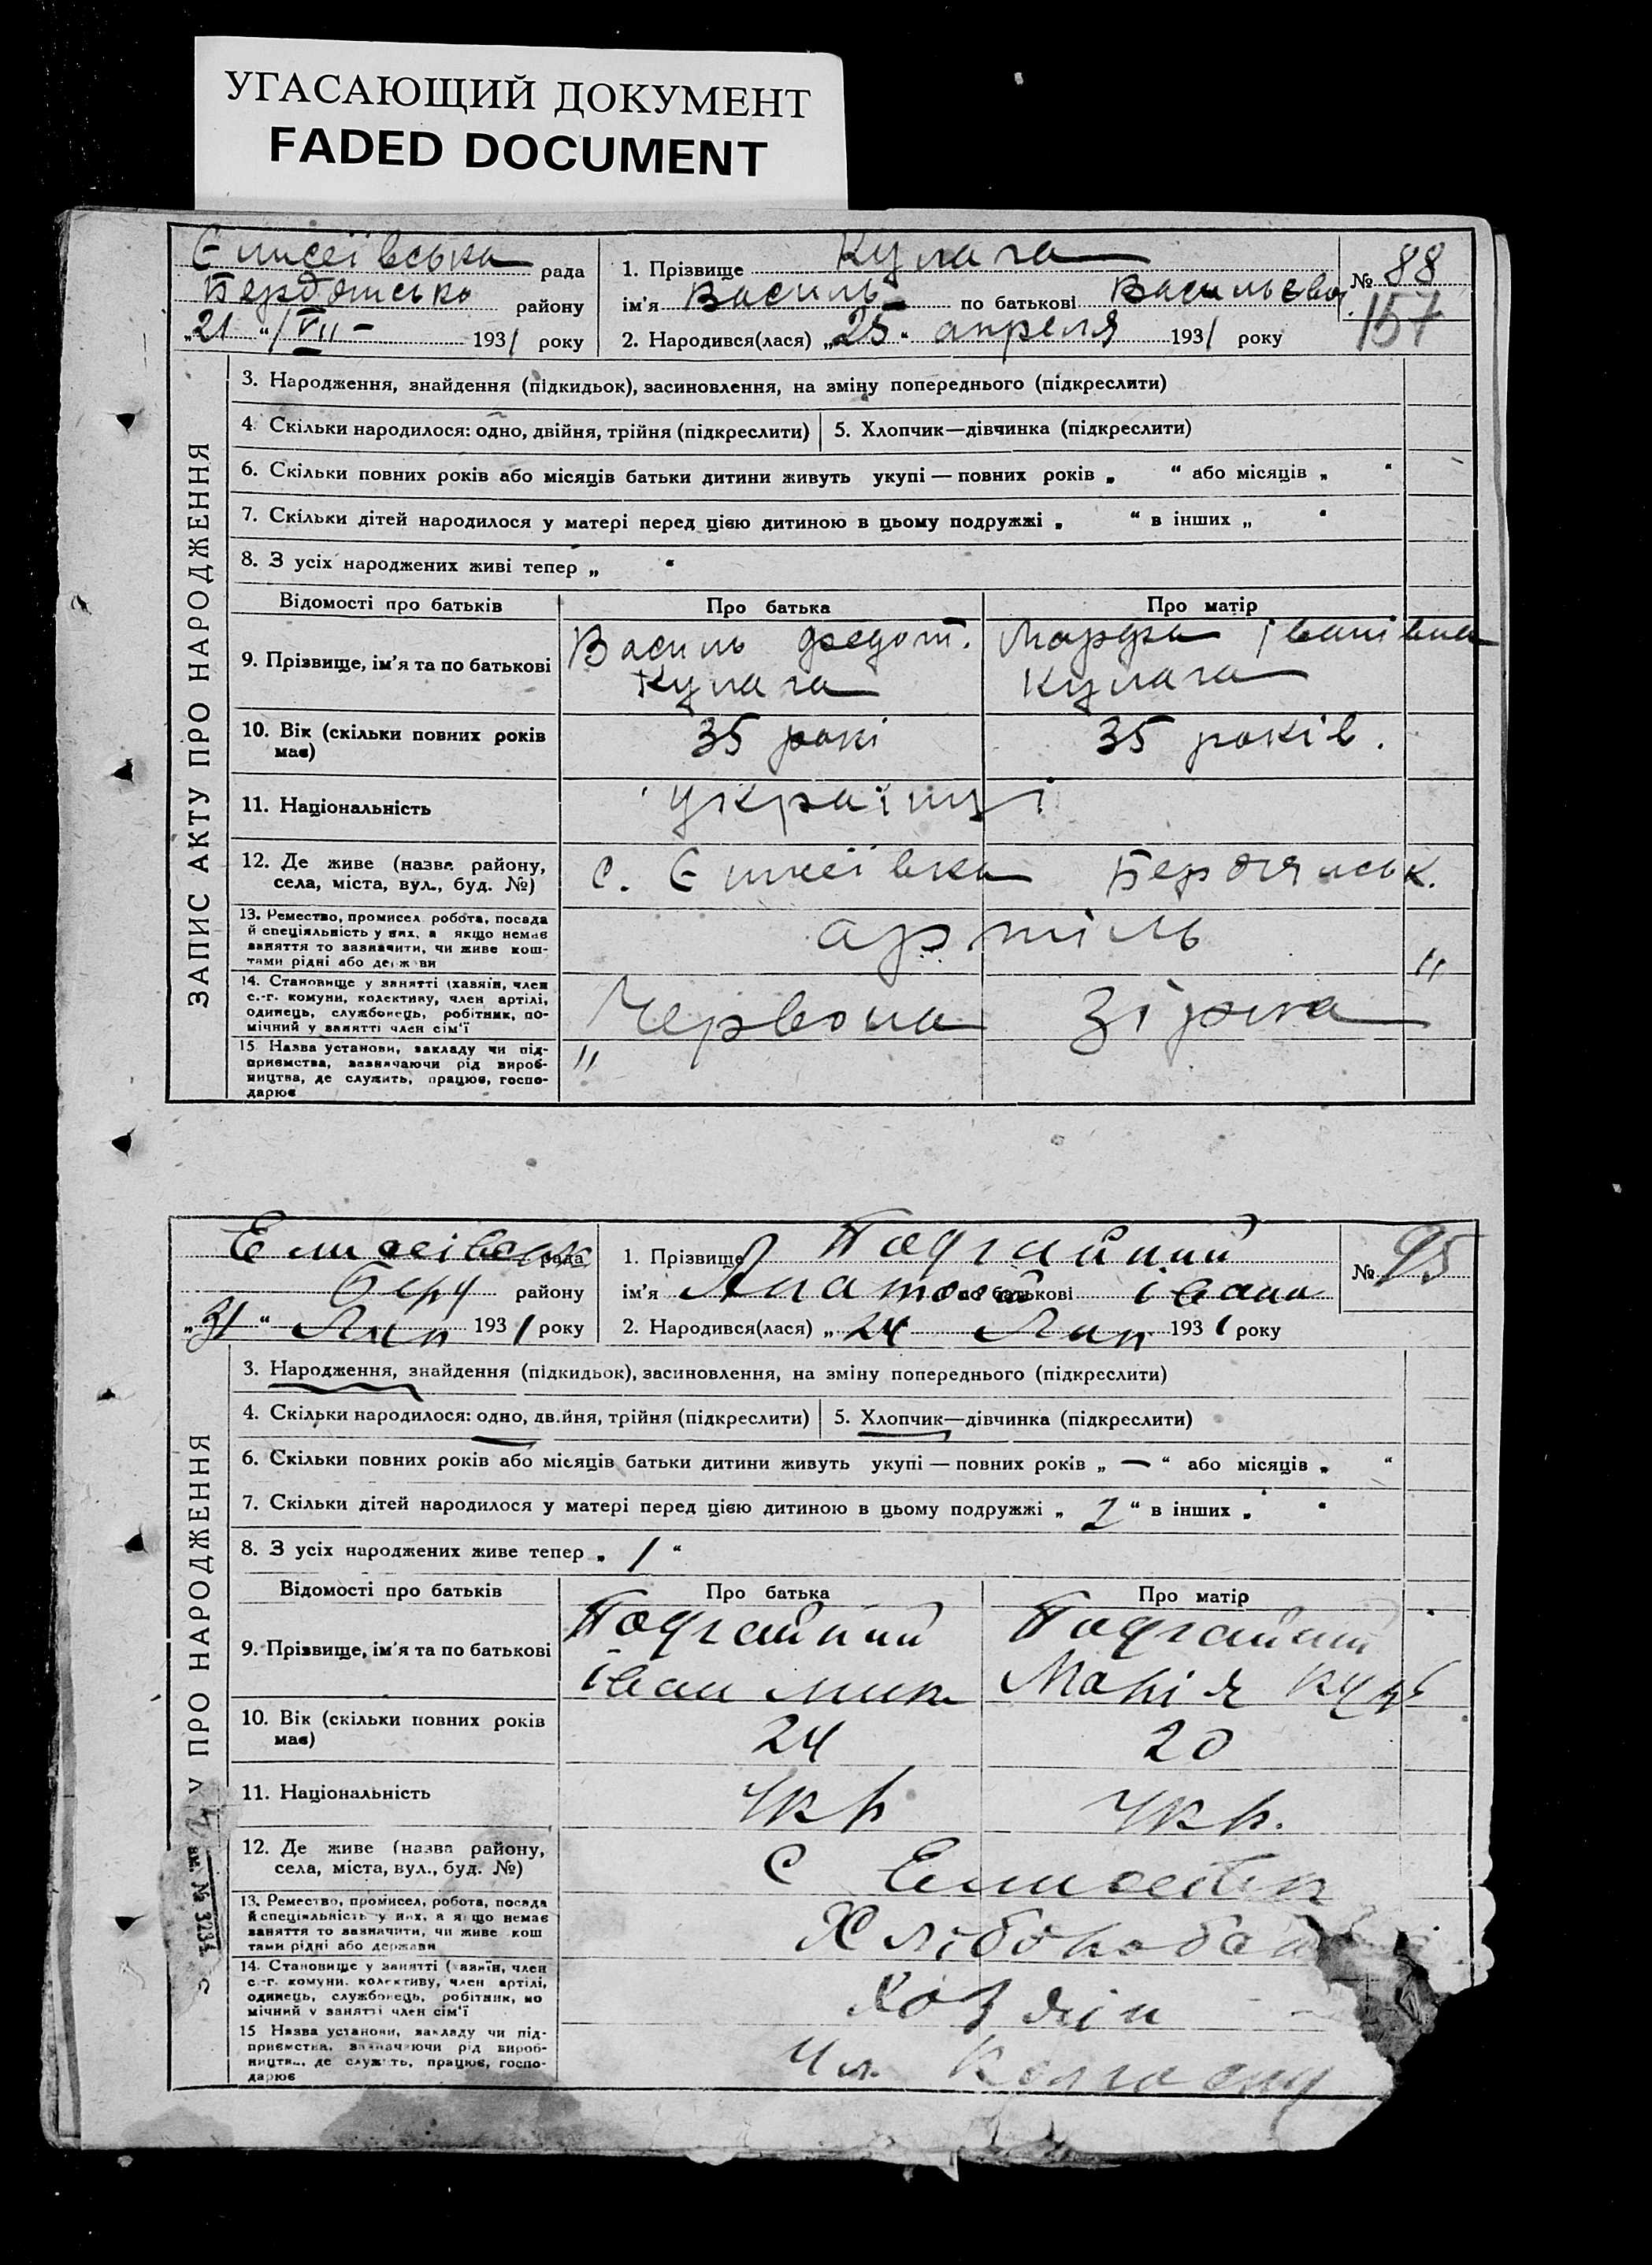 УГАСАЮЩИЙ ДОКУМЕНТ
FADED DOCUMENT
Єлисеївська рада
Бердянсько району
„21“ /VII – 1931 року
1. Прізвище Кулага
ім'я Василь по батькові Васильєвич
2. Народився(лася) „25“ апреля 1931 року
№ 88
157
ЗАПИС АКТУ ПРО НАРОДЖЕННЯ
3. Народження, знайдення (підкидьок), засиновлення, на зміну попереднього (підкреслити)
4. Скільки народилося: одно, двійня, трійня (підкреслити) 5. Хлопчик—дівчинка (підкреслити)
6. Скільки повних років або місяців батьки дитини живуть укупі — повних років „ “ або місяців „ “
7. Скільки дітей народилося у матері перед цією дитиною в цьому подружжі „ “ в інших „ “
8. З усіх народжених живі тепер „ “
Відомості про батьків Про батька Про матір
9. Прізвище, ім'я та по батькові
Василь Федот. Марфа Іванівна
Кулага Кулага
10. Вік (скільки повних років має)
35 рокі 35 років.
11. Національність
українці
12. Де живе (назва району, села, міста, вул., буд. №)
с. Єлисеївка Бердянськ.
13. Ремество, промисел робота, посада
й спеціяльність у них, а якщо немає
заняття то зазначити, чи живе кош-
тами рідні або держави
артіль "
14. Становище у занятті (хазяїн, член
с.-г. комуни, колективу, член артілі,
одинець, службовець, робітник, по-
мічний у занятті член сім'ї
Червона Зірка
15 Назва установи, закладу чи під-
приємства, зазначаючи рід вироб-
ництва, де служить, працює, госпо-
дарює
"
Елисеївськ рада
Берд району
„31“ Лип 1931 року
1. Прізвище Подгайний
ім'я Анатолій по батькові Іванн
2. Народився(лася) „24 Лип 1931 року
№ 95
ПРО НАРОДЖЕННЯ
3. Народження, знайдення (підкидьок), засиновлення, на зміну попереднього (підкреслити)
4. Скільки народилося: одно, двійня, трійня (підкреслити) 5. Хлопчик—дівчинка (підкреслити)
6. Скільки повних років або місяців батьки дитини живуть укупі — повних років „ — “ або місяців „ “
7. Скільки дітей народилося у матері перед цією дитиною в цьому подружжі „ 1 “ в інших „ “
8. З усіх народжених живе тепер „ 1 “
Відомості про батьків Про батька Про матір
9. Прізвище, ім'я та по батькові
Подгайний Подгайний
Іван Мик Марія
10. Вік (скільки повних років має)
24 20
11. Національність
Укр Укр.
12. Де живе (назва району,
села, міста, вул., буд. №)
С Елисеївк
13. Ремество, промисел, робота, посада
й спеціяльність у них, а якщо немає
заняття то зазначити, чи живе кош
тами рідні або держави
Хлібороба
14. Становище у занятті (хазяїн, член
с.-г. комуни. колективу, член артілі,
одинець, службовець, робітник, по
мічний у занятті член сім'ї
Хозяін
15 Назва установи, закладу чи під-
приємства, зазначаючи рід вироб-
ництва, де служить, працює, госпо-
дарює
Чл. Колгоспу